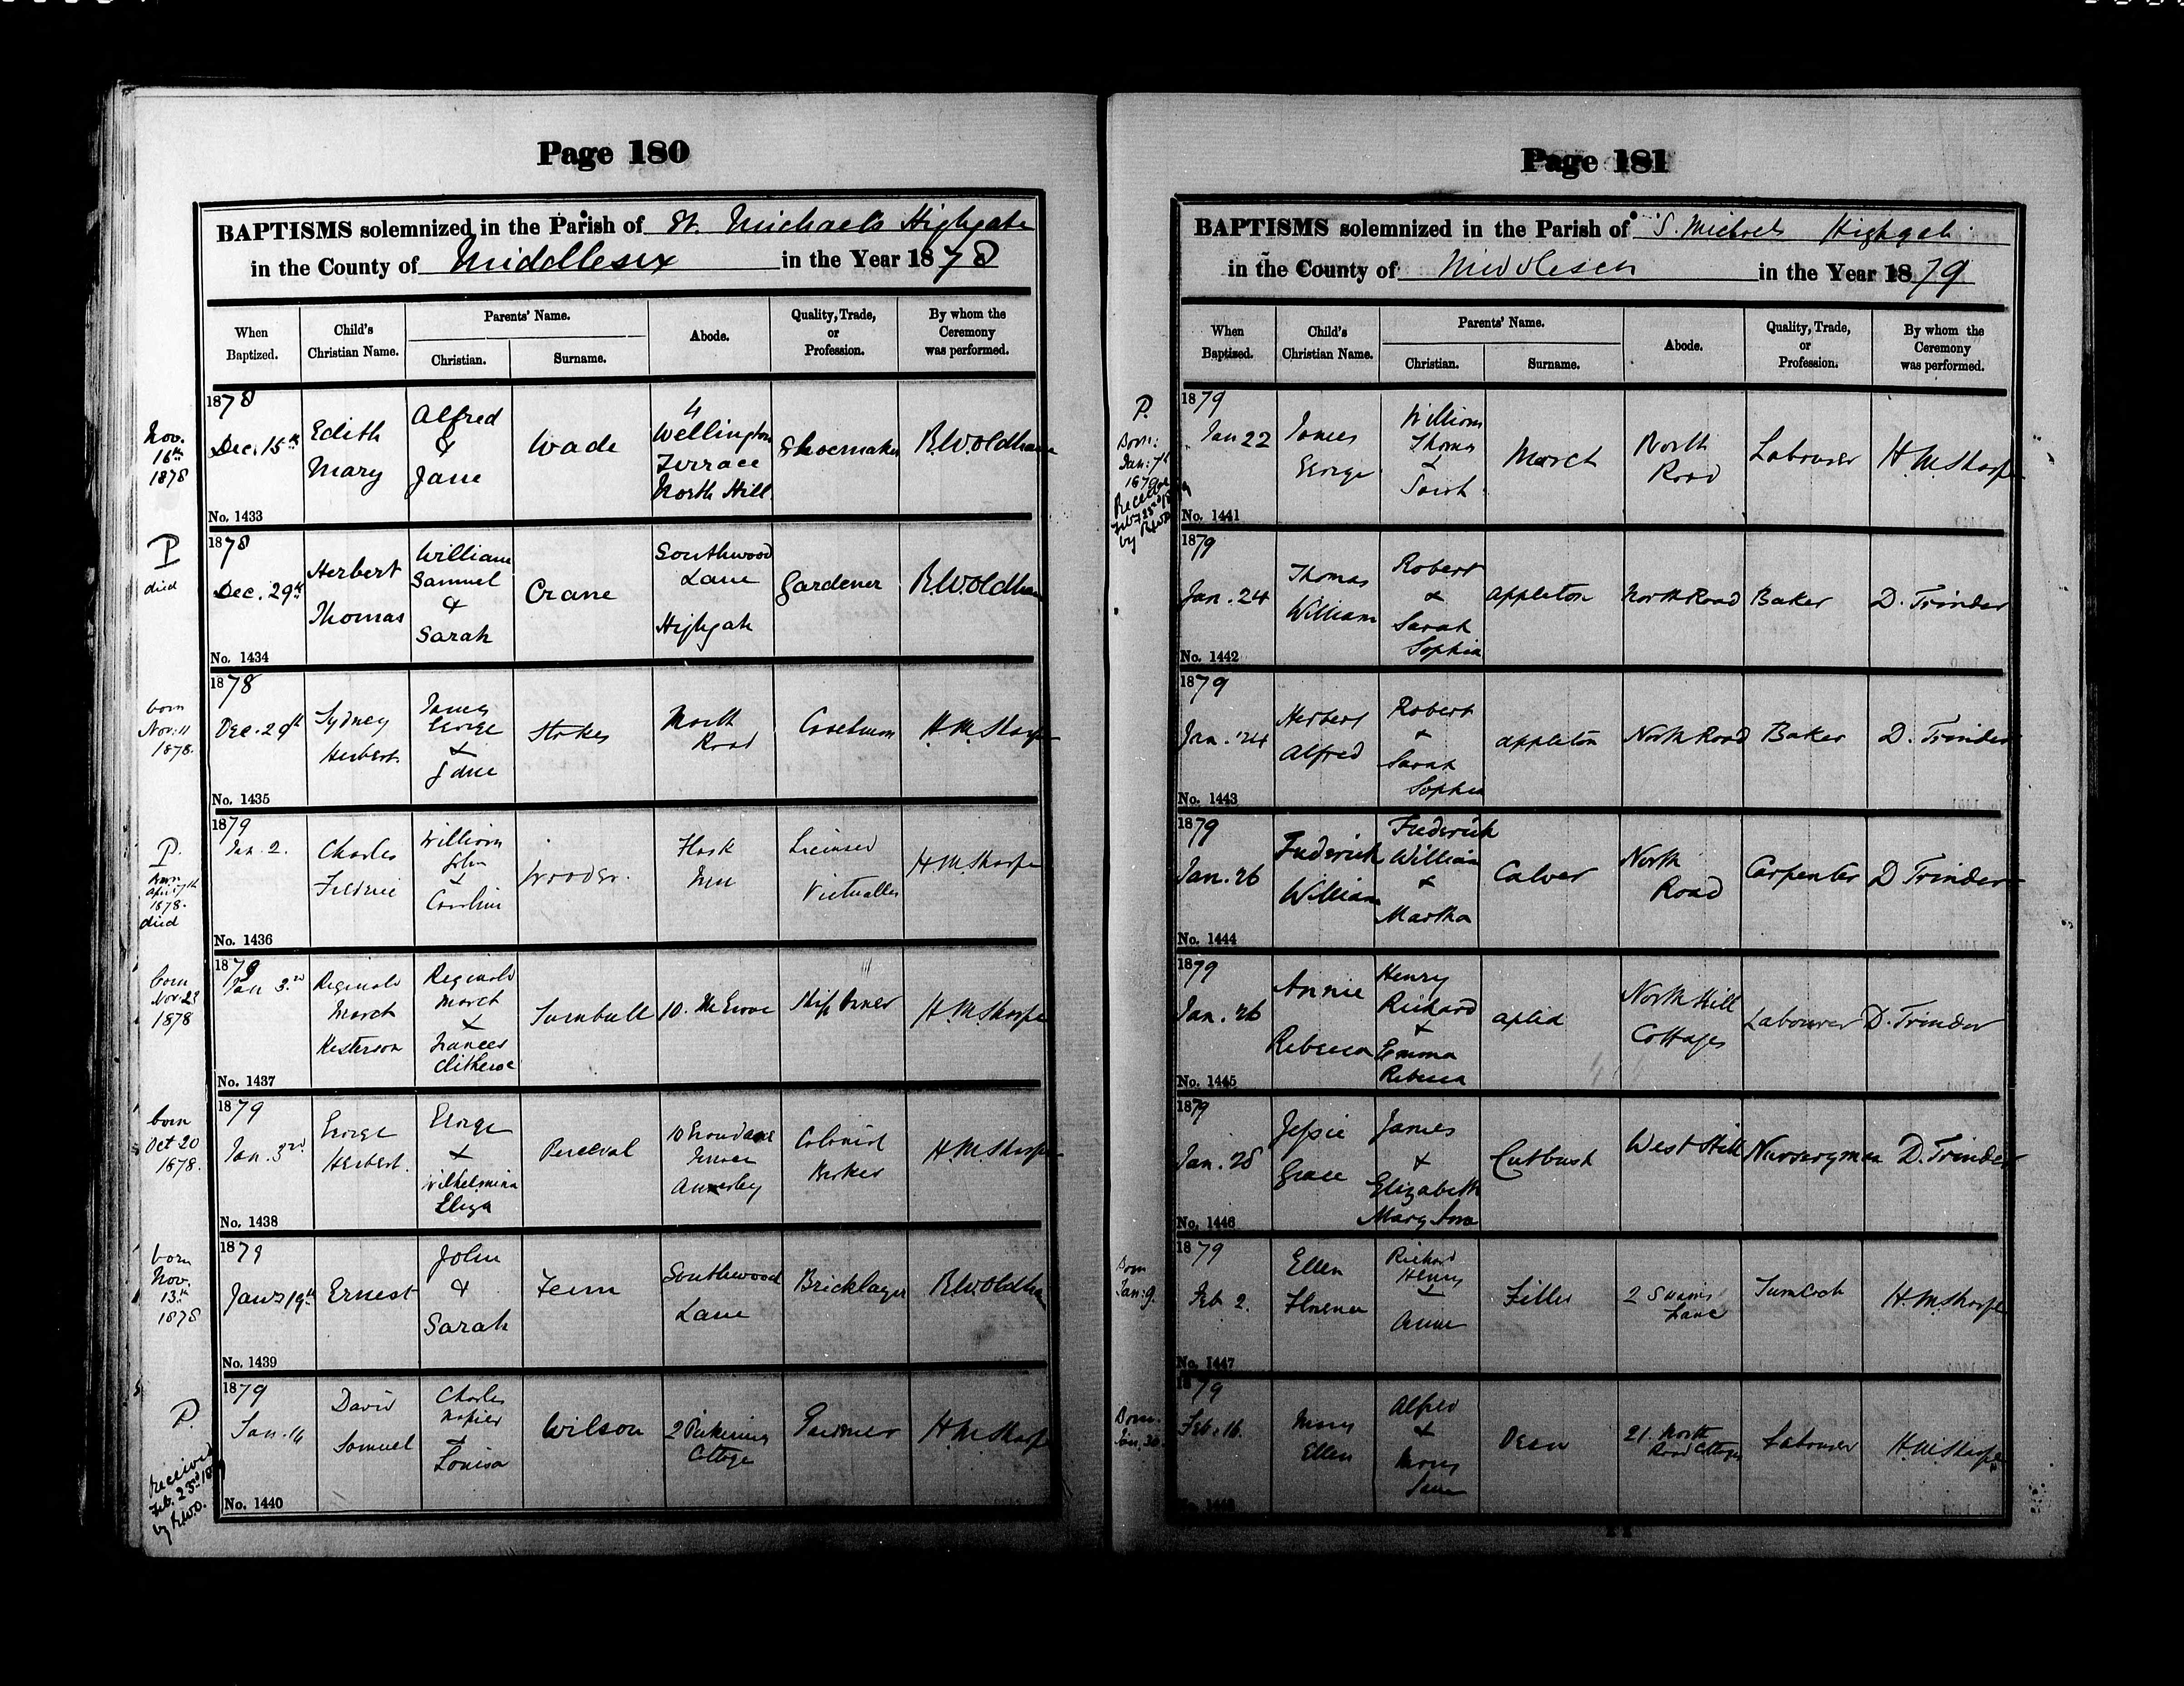 Page 180
BAPTISMS solemnized in the Parish of St. Michael's Highgate
in the County of Middlesex in the Year 1878
When Baptized.
Child's Christian Name.
Parents' Name.
Christian.
Surname.
Abode.
Quality, Trade, or Profession.
By whom the Ceremony was performed.
Nov. 16th 1878
1878
Dec. 15th
Edith Mary
Alfred & Jane
Wade
4 Wellington Terrace North Hill
Shoemaker
R.W. Oldham
No. 1433
P
died
1878
Dec. 29th
Herbert Thomas
William Samuel & Sarah
Crane
Southwood Lane Highgate
Gardener
R.W. Oldham
No. 1434
born Nov. 11 1878.
1878
Dec. 29th
Sydney Herbert
James George & Jane
Stokes
North Road
Coachman
H.M. Sharpe
No. 1435
P.
Born April 7th 1878.
died
1879
Jan. 2.
Charles Frederic
William John & Caroline
Flask Inn
Licensed Victualler
H.M. Sharpe
No. 1436
born Nov. 23 1878
1879
Jan 3rd
Reginald March
Reginald March & Frances Clitheroe
Turnbull
10. The Grove
Ship Owner
H.M. Sharpe
No. 1437
born Oct 20 1878.
1879
Jan. 3rd
George Herbert.
George & Wilhelmina Eliza
Perceval
10
Terrace
Colonial Broker
H.M. Sharpe
No. 1438
born Nov. 13th 1878
1879
Jany 19th
Ernest
John & Sarah
Fenn
Southwood Lane
Bricklayer
R.W. Oldham
No. 1439
P.
Received Feb. 23rd 1879 by R.W.O.
1879
Jan. 16
David Samuel
Charles Napier & Louisa
Wilson
2
Cottage
H.M. Sharpe
No. 1440
Page 181
BAPTISMS solemnized in the Parish of S. Michaels Highgate
in the County of Middlesex in the Year 1879
When Baptized.
Child's Christian Name.
Parents' Name.
Christian.
Surname.
Abode.
Quality, Trade, or Profession.
By whom the Ceremony was performed.
P.
Born: Jan: 7th 1879
Received Feby 23rd
by R.W.O.
1879
Jan 22
James George
William Thomas & Sarah
March
North Road
Labourer
H.M. Sharpe
No. 1441
1879
Jan. 24
Thomas William
Robert & Sarah Sophia
Appleton
North Road
Baker
D. Trinder
No. 1442
1879
Jan. 24
Herbert Alfred
Robert & Sarah Sophia
Appleton
North Road
Baker
D. Trinder
No. 1443
1879
Jan. 26
Frederick William
Frederick William & Martha
Calver
North Road
Carpenter
D Trinder
No. 1444
1879
Jan. 26
Annie Rebecca
Henry Richard & Emma Rebecca
Aplid
North Hill Cottages
Labourer
D. Trinder
No. 1445
1879
Jan. 28
Jessie Grace
James & Elizabeth Mary Ann
Cutbush
West Hill
Nurseryman
D. Trinder
No. 1446
Born Jan: 9.
1879
Feb 2.
Ellen Florence
Richard Henry & Annie
2 Swains Lane
Turncock
H.M. Sharpe
No. 1447
Born. Jan. 30
1879
Feb. 16.
Mary Ellen
Alfred & Mary Jane
Dean
21. North Road Cottages
Labourer
H.M. Sharpe
No. 1448